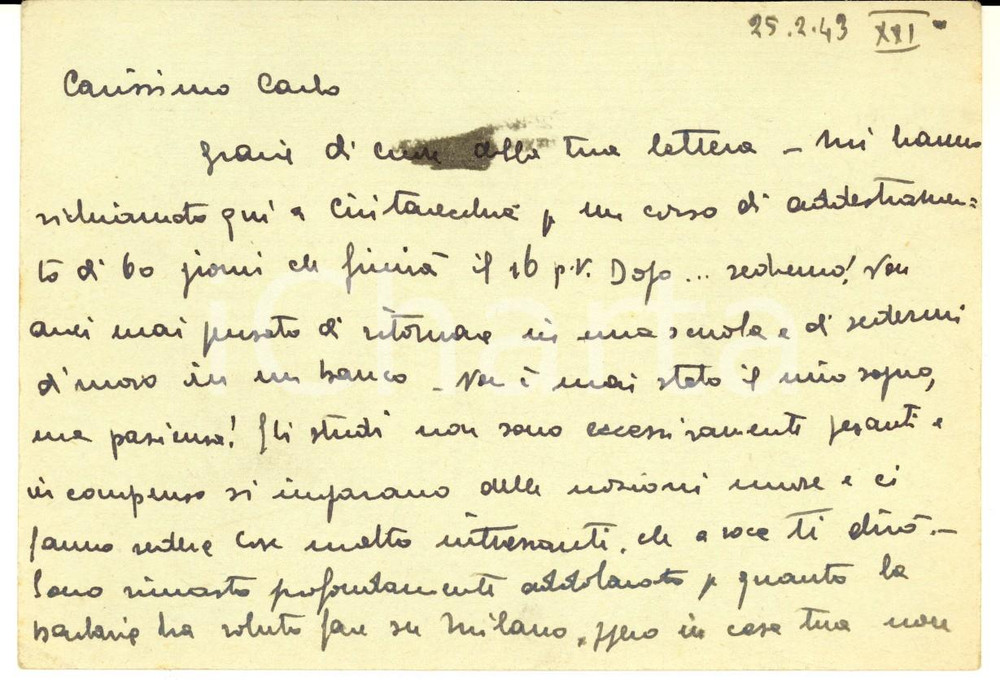 25.2.43 XXI
Carissimo Carlo
Grazie di cuore della tua lettera – Mi hanno
richiamato qui a Civitavecchia p un corso di addestramen=
to di 60 giorni che finirà il 16 p.v. Dopo... vedremo! Non
avrei mai pensato di ritornare in una scuola e di sedermi
di nuovo in un banco – Non è mai stato il mio sogno,
ma pazienza! Gli studi non sono eccessivamente pesanti e
in compenso si imparano delle nozioni nuove e ci
fanno vedere cose molto interessanti, che a voce ti dirò. –
Sono rimasto profondamente addolorato p quanto la
barbarie ha voluto fare su Milano, spero in casa tua non
iCharta